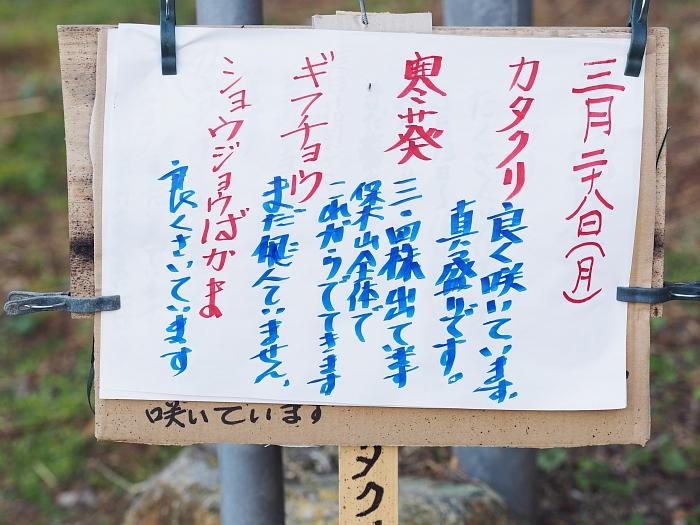 三月二十八日(月)
カタクリ
良く咲いています。
真盛りです。
寒葵
三・四株出ています
保木山全体で
これからでてきます
ギフチョウ
まだ飛んていません、
ショウジョウばかま
良くさいています
咲いています
タク